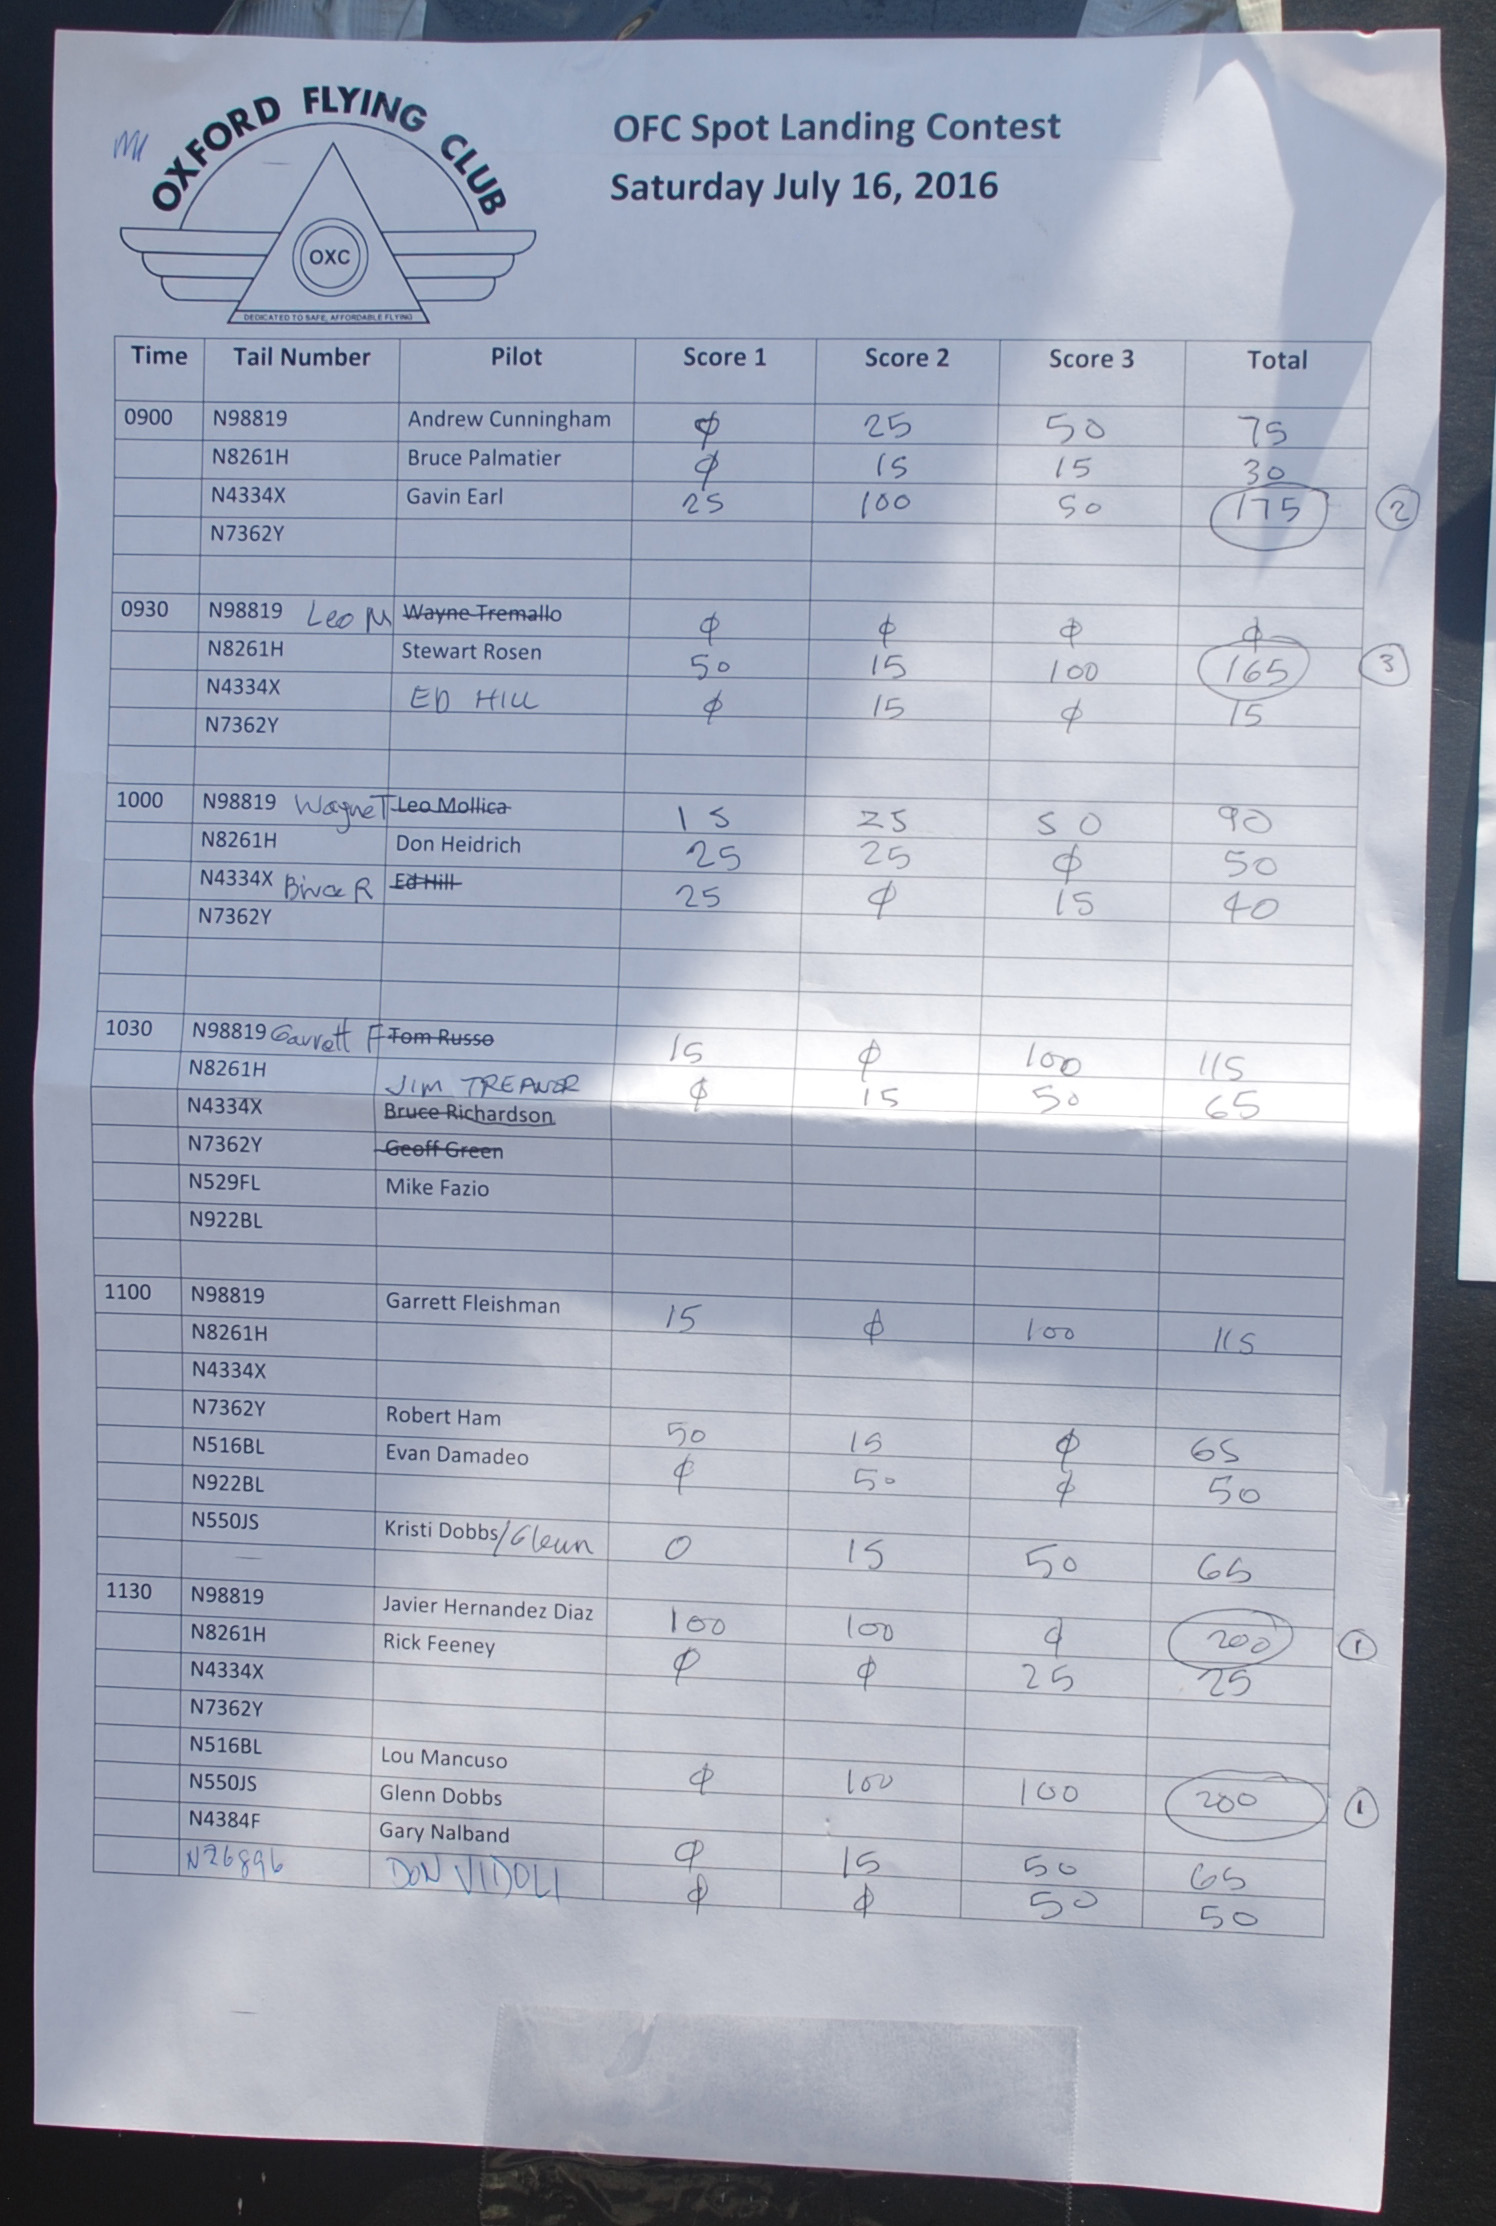 OXFORD FLYING CLUB
OXC
DEDICATED TO SAFE, AFFORDABLE FLYING
OFC Spot Landing Contest
Saturday July 16, 2016
Time Tail Number Pilot Score 1 Score 2 Score 3 Total
0900 N98819 Andrew Cunningham ϕ 25 50 75
N8261H Bruce Palmatier ϕ 15 15 30
N4334X Gavin Earl 25 100 50 175 2
N7362Y
0930 N98819 Leo M Wayne Tremallo ϕ ϕ ϕ ϕ
N8261H Stewart Rosen 50 15 100 165 3
N4334X ED HILL ϕ 15 ϕ 15
N7362Y
1000 N98819 Wayne T Leo Mollica 15 25 50 90
N8261H Don Heidrich 25 25 ϕ 50
N4334X Bruce R Ed Hill 25 ϕ 15 40
N7362Y
1030 N98819 Garrett F Tom Russo 15 ϕ 100 115
N8261H JIM TREANOR ϕ 15 50 65
N4334X Bruce Richardson
N7362Y Geoff Green
N529FL Mike Fazio
N922BL
1100 N98819 Garrett Fleishman 15 ϕ 100 115
N8261H
N4334X
N7362Y Robert Ham 50 15 ϕ 65
N516BL Evan Damadeo ϕ 50 ϕ 50
N922BL
N550JS Kristi Dobbs/Glenn 0 15 50 65
1130 N98819 Javier Hernandez Diaz 100 100 ϕ 200 1
N8261H Rick Feeney ϕ ϕ 25 25
N4334X
N7362Y
N516BL Lou Mancuso ϕ 100 100 200 1
N550JS Glenn Dobbs
N4384F Gary Nalband ϕ 15 50 65
N26896 DON VIDOLI ϕ ϕ 50 50